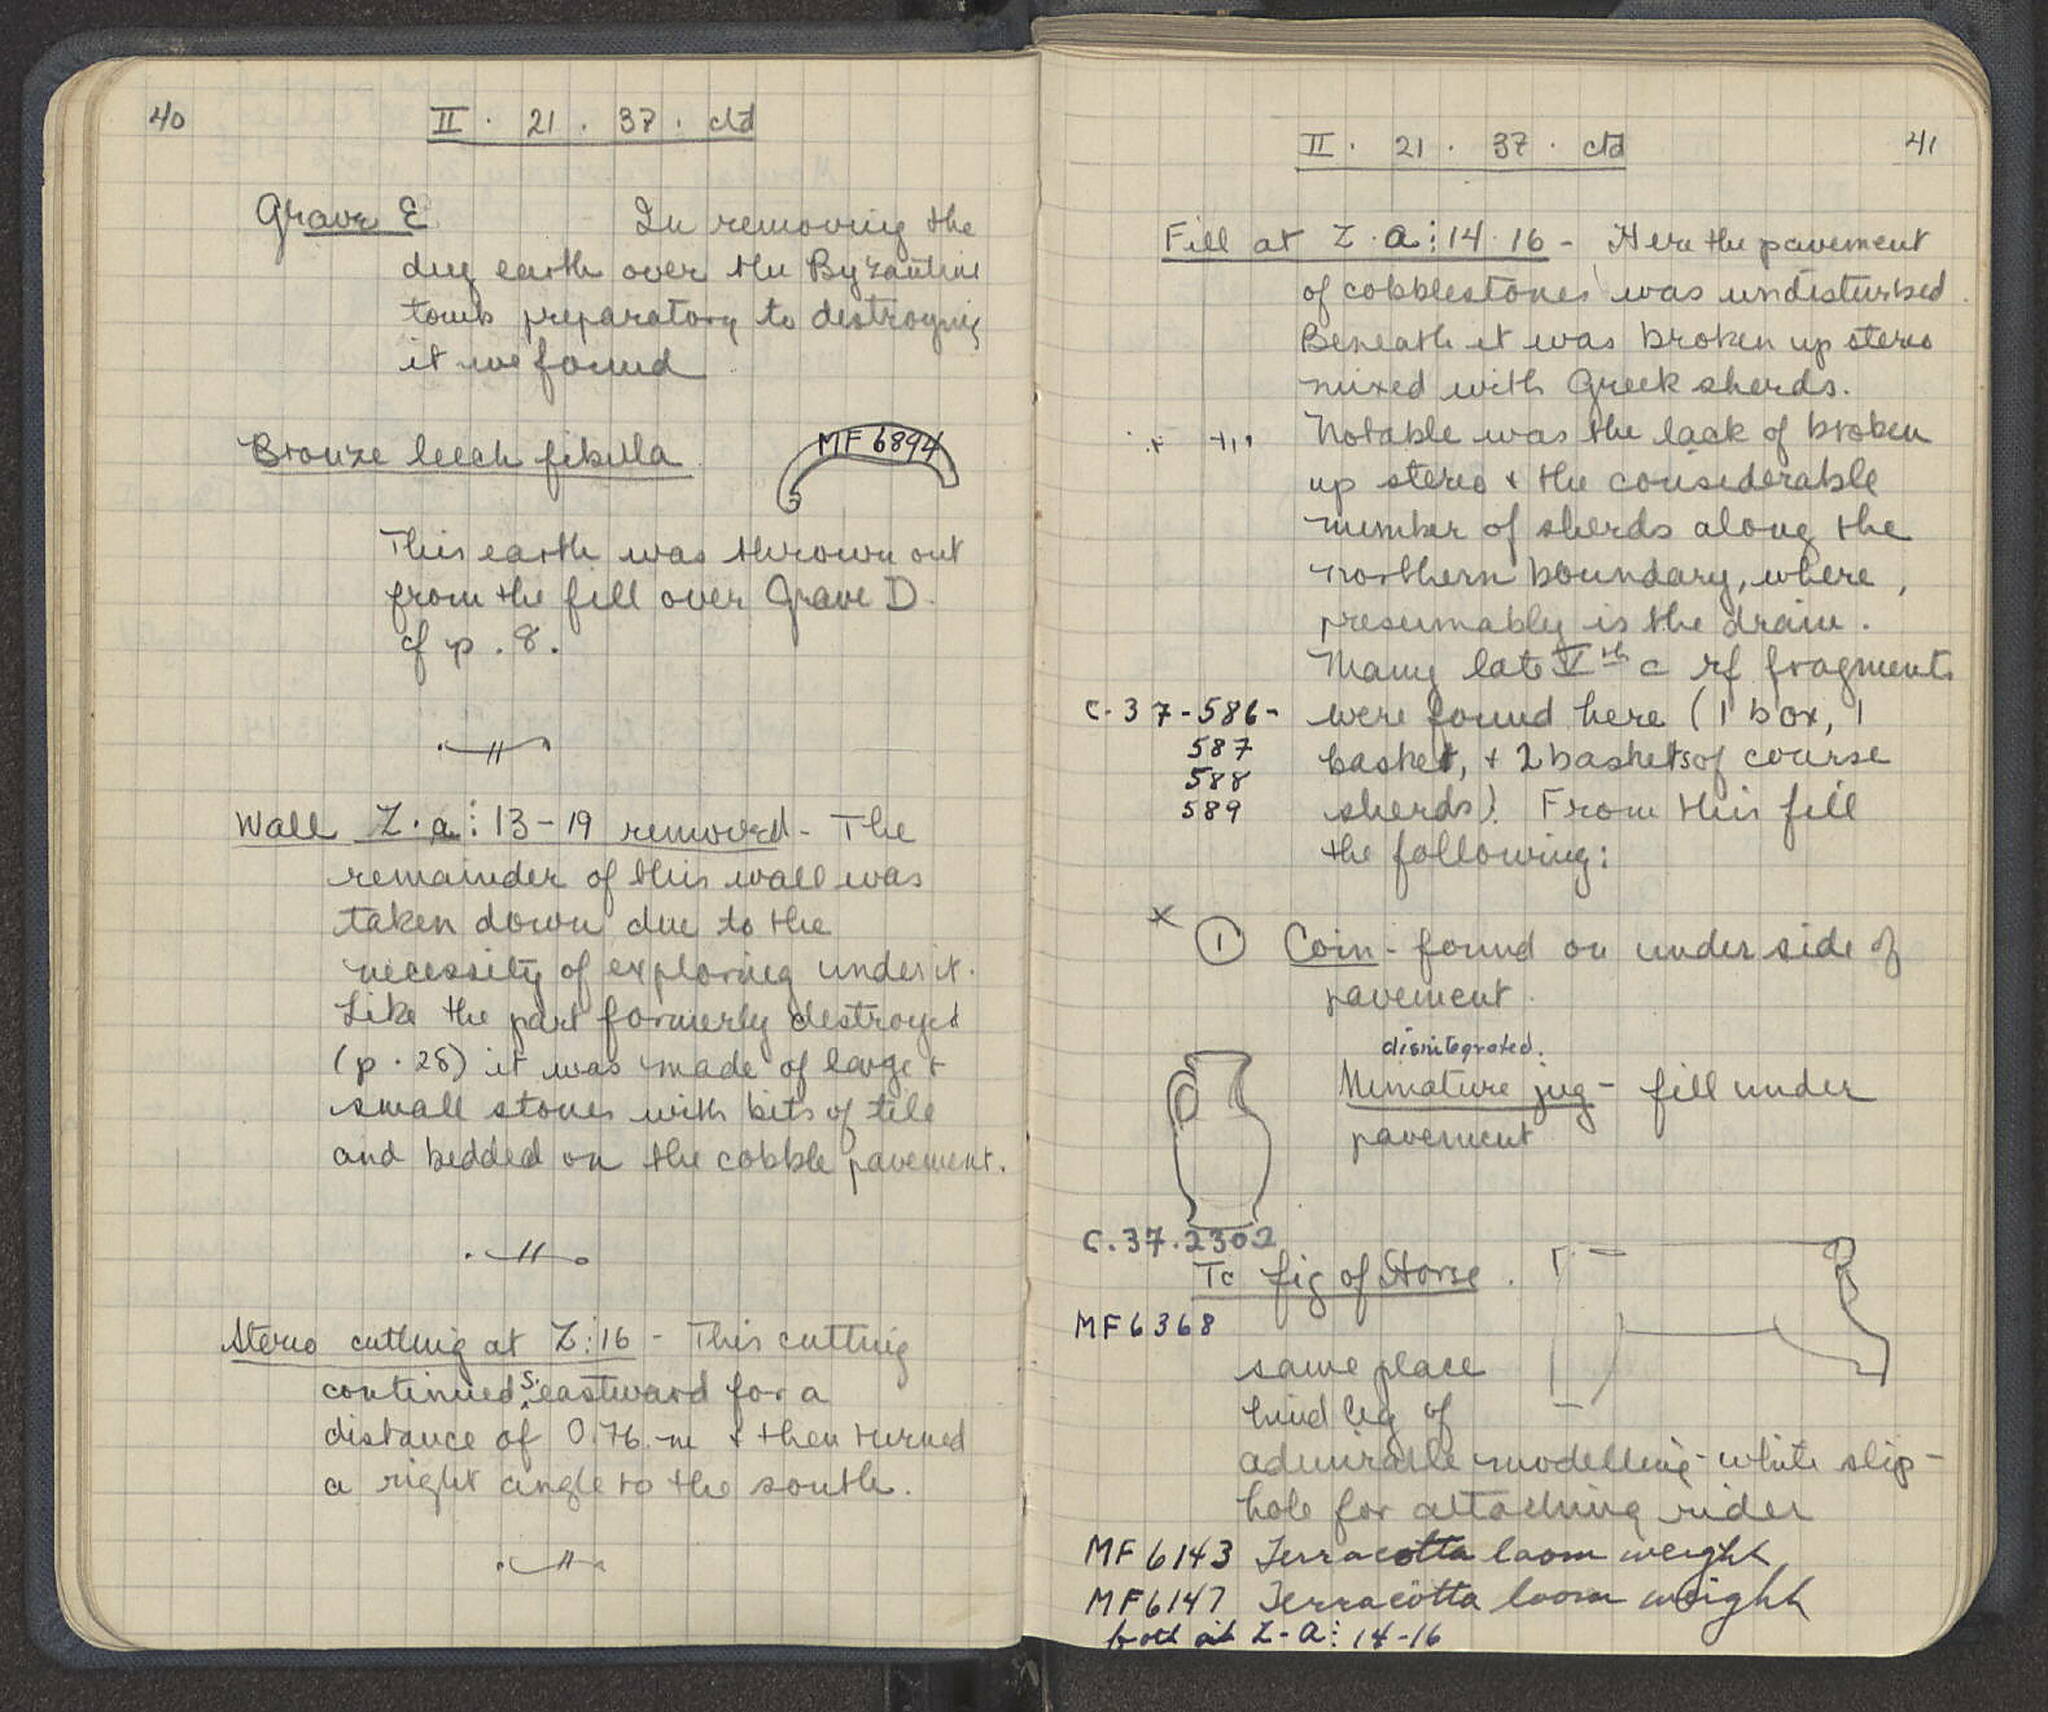 40
II . 21 . 37 . ctd
Grave E In removing the
dug earth over the Byzantine
tomb preparatory to destroying
it we found
Bronze leech fibula
MF 6894
This earth was thrown out
from the fill over Grave D.
cf p. 8.
Wall Z.a : 13-19 removed - The
remainder of this wall was
taken down due to the
necessity of exploring under it.
Like the part formerly destroyed
(p. 28) it was made of large +
small stones with bits of tile
and bedded on the cobble pavement.
Stereo cutting at Z:16 - This cutting
continued s.eastward for a
distance of 0.76 m + then turned
a right angle to the south.
II . 21 . 37 . ctd
41
Fill at Z.a:14.16 - Here the pavement
of cobblestones was undisturbed.
Beneath it was broken up stereo
mixed with Greek sherds.
Notable was the lack of broken
up stereo + the considerable
number of sherds along the
northern boundary, where,
presumably is the drain.
Many late Vth c rf fragments
C.37-586- were found here (1 box, 1
587 basket, + 2 baskets of course
588
589 sherds). From this fill
the following:
x ① Coin - found on under side of
pavement.
disintegrated.
Miniature jug - fill under
pavement
C.37.2302
Tc fig of Horse.
MF6368
same place
hind leg of
admirable modelling - white slip -
hole for attaching rider
MF 6143 Terracotta loom weight
MF6147 Terracotta loom weight
both at Z-a: 14-16